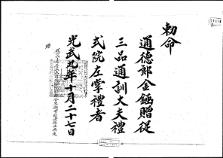 勅命
通德郞金 贈從
三品通訓大夫禮
式院左掌禮者
光武九年十月二十七日